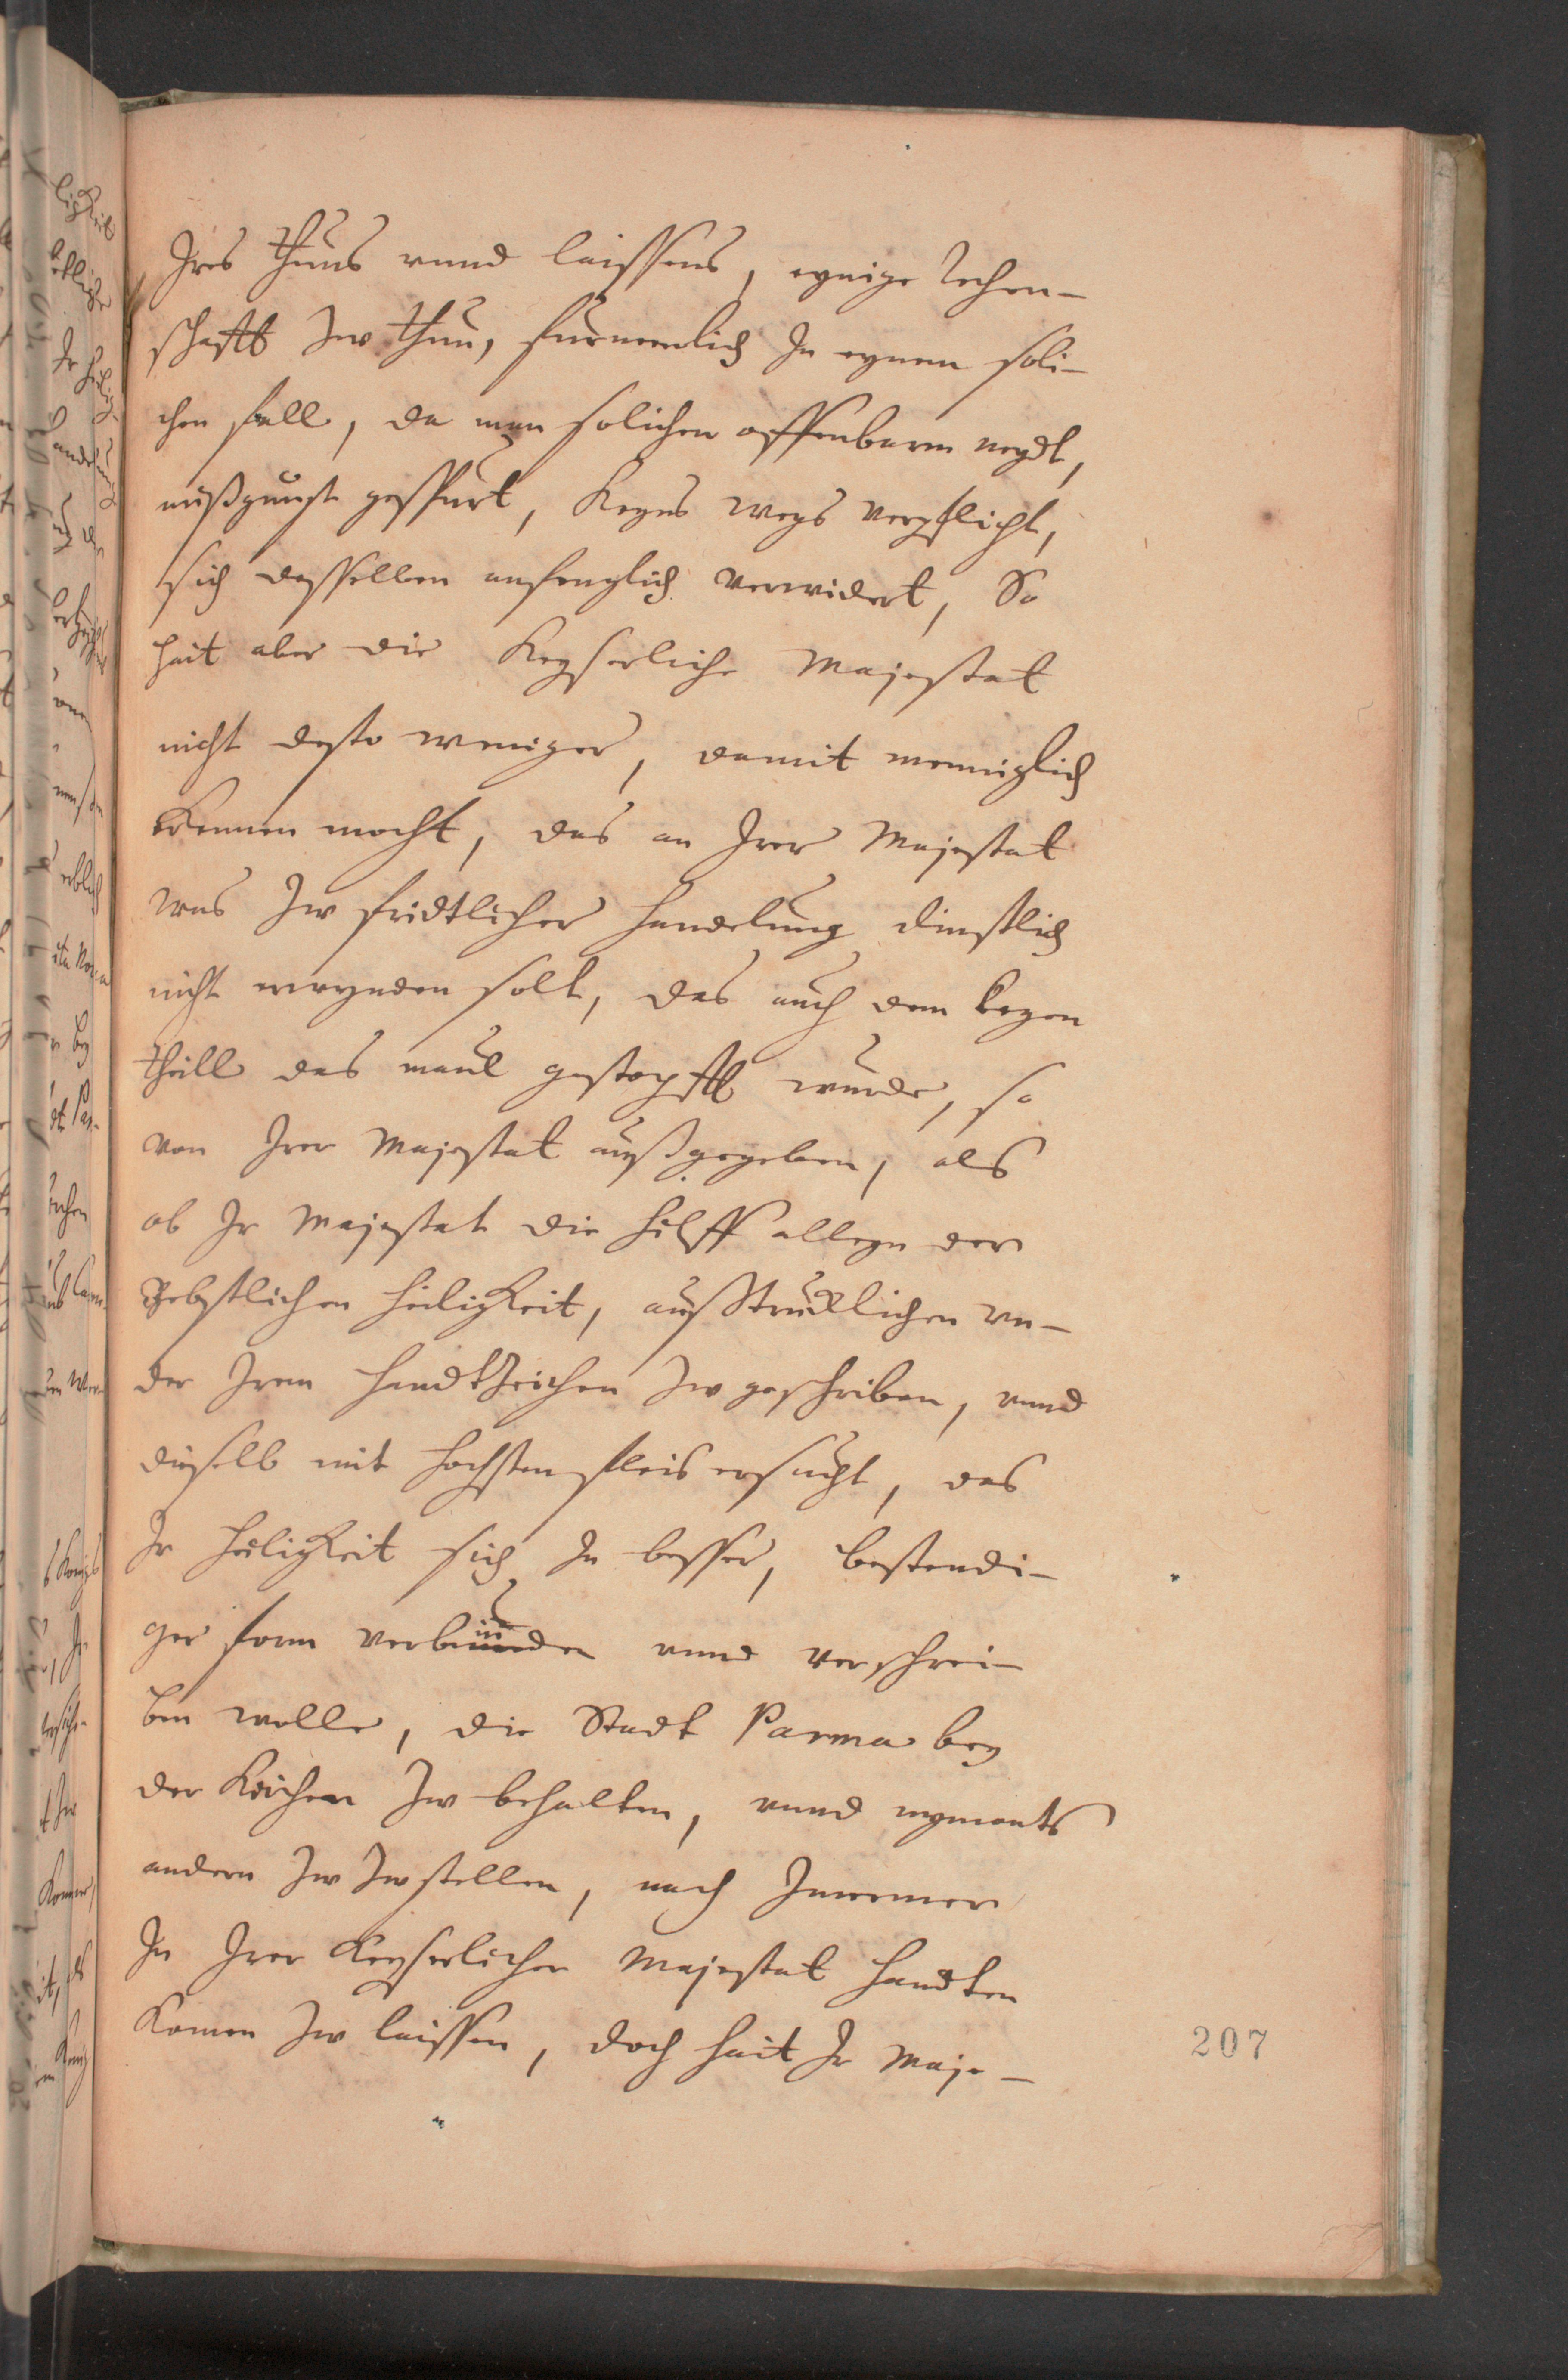 Ires thuns unnd laissens, eynige rechen-
schafft Zw thun, furnemlich In eynem soli-
chen fall, da man solichen offenbarn neydt,
mißgunst gespurt, keyns wegs verpflicht,
sich desselben anfenglich verwidert, So
hait aber die Keyserliche Majestat
nicht desto weniger, damit menniglich
erkennen mocht, das an Irer Majestat
was Zw fridtlicher handelung dinstlich
nicht erwynden solt, das auch dem kegen
theill das maul gestopfft wurde, so
von Irer Majestat außgegeben, als
ob Ir Majestat die hilff alleyn der
Pebstlichen heiligkeit, außtrucklichen un-
der Irem handtzeichen Zw geschriben, unnd
dieselb mit hochstem fleis ersucht, das
Ir heiligkeit sich In besser, bestendi-
ger form verbinden unnd verschrei-
ben wolle, die Stadt Parma bey
der Kirchen Zw behalten, unnd nymants
andern Zw Zwstellen, noch Immermer
In Irer Keyserlicher Majestat handten
komen Zw laissen, doch hait Ir Maje-
207